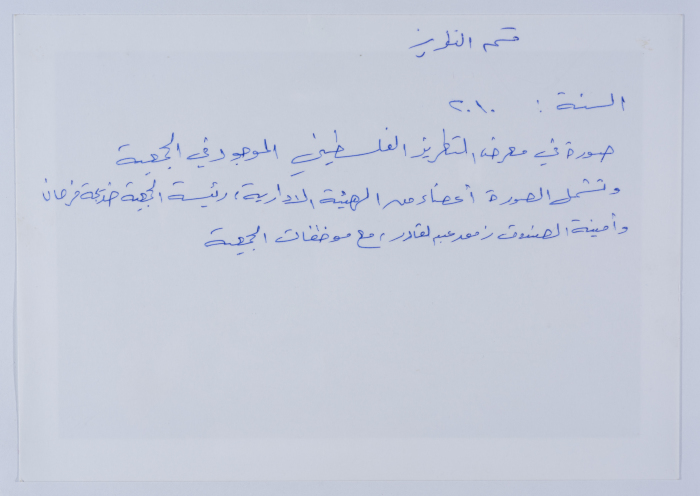 قسم التطريز
السنة : ٢٠١٠
صورة في معرض التطريز الفلسطيني الموجود في الجمعية
وتشمل الصورة أعضاء من الهيئة الادارية، رئيسة الجمعية خديجة فرحان
وأمينة الصندوق زمرد عبدالقادر، مع موظفات الجمعية